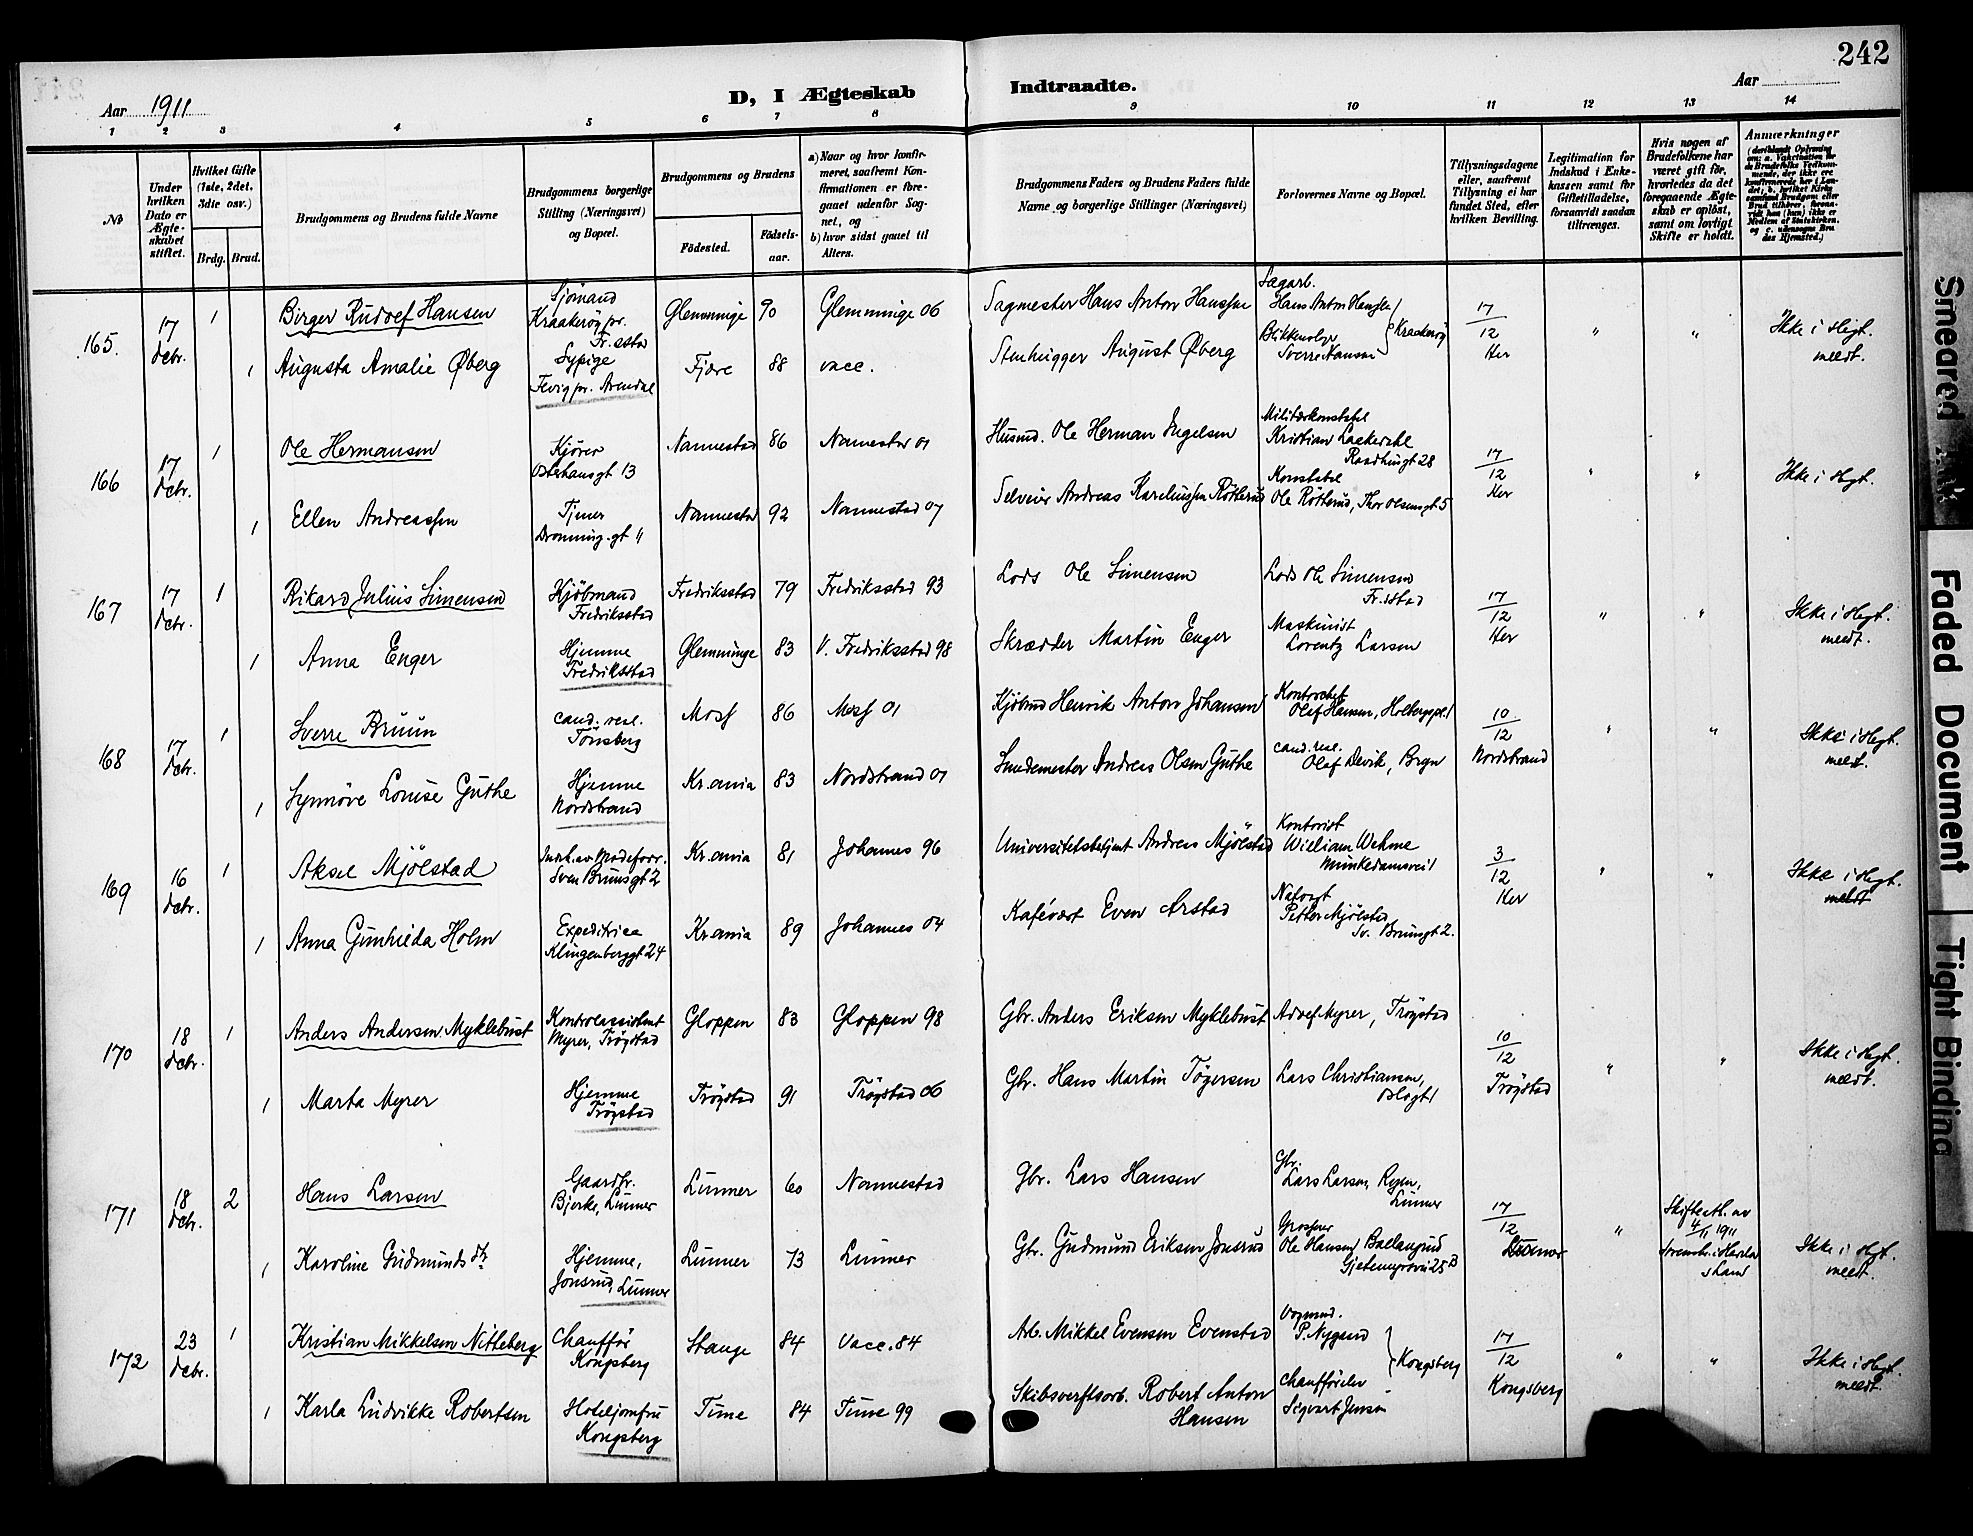 242
Aar 1911
D, I Ægteskab Indtraadte.
Aar
1 2 3 4 5 6 7 8 9 10 11 12 13 14
No
Under hvilken Dato er Ægteskabet stiftet.
Hvilket Gifte (1ste, 2det, 3die osv.)
Brdg. Brud.
Brudgommens og Brudens fulde Navne
Brudgommens borgerlige Stilling (Næringsvei) og Bopæl.
Brudgommens og Brudens
Födested.
Födsels-aar.
a) Naar og hvor konfirmeret, saafremt Konfirmationen er foregaaet udenfor Sognet, og
b) hvor sidst gaaet til Alters.
Brudgommens Faders og Brudens Faders fulde Navne og borgerlige Stillinger (Næringsvei)
Forlovernes Navne og Bopæl.
Tillysningsdagene eller, saafremt Tillysning ei har fundet Sted, efter hvilken Bevilling.
Legitimation for Indskud i Enkekassen samt for Giftetilladelse, forsaavidt saadan tiltrænges.
Hvis nogen af Brudefolkene har været gift før, hvorledes da det foregaaende Ægteskab er oplöst, samt om lovligt Skifte er holdt.
Anmærkninger
165. 17 Decbr. 1 Birger Rudolf Hansen Sjömand Kraakeröy pr. Fr.stad Glemminge 90 Glemminge 06 Sagmester Hans Anton Hanssen Sagarb. Hans Anton Hanssen Kraakeröy 17/12 Her " " Ikke i slegt. meldt.
1 Augusta Amalie Øberg Sypige Fevig pr. Arendal Fjære 88 vacc. Stenhugger August Øberg Sverre Hansen
166 17 Decbr. 1 Ole Hermansen Kjörer Østehausgt 13 Nannestad 86 Nannestad 01 Husmd. Ole Herman Ingelsen Militærkonstabel Kristian Raadhusgt 28 17/12 Her " " Ikke i slegt.
1 Ellen Andreassen Tjener Dronning.gt 11 Nannestad 92 Nannestad 07 Selveier Andreas Kareliussen Rötterud Konstabel Ole Rötterud, Thor Olsensgt 5
167 17 Decbr. 1 Rikard Julius Simensen Kjöbmand Fredriksstad Fredriksstad 79 Fredriksstad 93 Lods Ole Simensen Lods Ole Simensen Fr.stad 17/12 Her " " Ikke i slegt. meldt.
1 Anna Enger Hjemme Fredriksstad Glemminge 83 V. Fredriksstad 98 Skrædder Martin Enger Maskinist Lorentz Larsen
168 17 Decbr. 1 Sverre Bruun cand. real. Tönsberg Moss 86 Moss 01 Kjöbmd Henrik Anton Johansen Kontorchef Olaf Hansen, Holbergspl. 1 10/12 Nordstrand " " Ikke i slegt. meldt.
1 Synnöve Louise Guthe Hjemme Nordstrand Kr.ania 83 Nordstrand 01 Smedemester Andreas Olsen Guthe cand. real. Olaf Devik, Brgn
169 16 Decbr. 1 Aksel Mjölstad Sven Brunsgt 2 Kr.ania 81 Johannes 96 Universitetsbetjent Andreas Mjölstad Kontorist William Wehme Munkedamsvei 1 3/12 Her " " Ikke i slegt. meldt
1 Anna Gunhilda Holm Expeditrice Klingenberggt 24 Kr.ania 89 Johannes 04 Kafévært Even Arstad Petter Mjölstad Sv. Brunsgt 2.
170 18 Decbr. 1 Anders Andersen Myklebust Kontrolassistent Myrer, Trögstad Gloppen 83 Gloppen 98 Gbr. Anders Eriksen Myklebust Adolf Myrer, Trögstad 10/12 Trögstad " " Ikke i slegt. meldt.
1 Marta Myrer Hjemme Trögstad Trögstad 91 Trögstad 06 Gbr. Hans Martin Tögersen Lars Christiansen, Oslogt 1
171 18 Decbr. 2 Hans Larsen Gaardbr. Bjerke, Lunner Lunner 60 Nannestad Gbr. Lars Hansen Gbr. Lars Larsen, Rogn, Lunner 17/12 Lunner " Skifteatt. av 4/11 1911 Ikke i slegt. meldt.
1 Karoline Gudmundsdtr Hjemme, Jonsrud, Lunner Lunner 73 Lunner Gbr. Gudmund Eriksen Jonsrud Grosserer Ole Hansen Ballangrud Gjetemyrsvei 25 B
172 23 Decbr. 1 Kristian Mikkelsen Nitteberg Chauffør Kongsberg Stange 84 Vacc. 84 Arb. Mikkel Evensen Evenstad Vognmd. P. Nygaard Kongsberg 17/12 Kongsberg " " Ikke i slegt. meldt.
1 Karla Ludvikke Robertsen Hoteljomfru Kongsberg Time 84 Time 99 Skibsverftsarb. Robert Anton Hansen Sigvart Jensen
Smeared Ink
Faded Document
Tight Binding